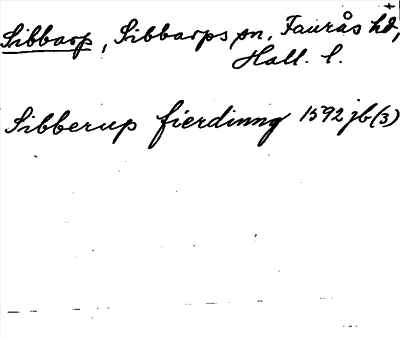 Sibbarp, Sibbarps sn. Faurås hd,
Hall. l.
Sibberup fierdinng 1592 jb(3)